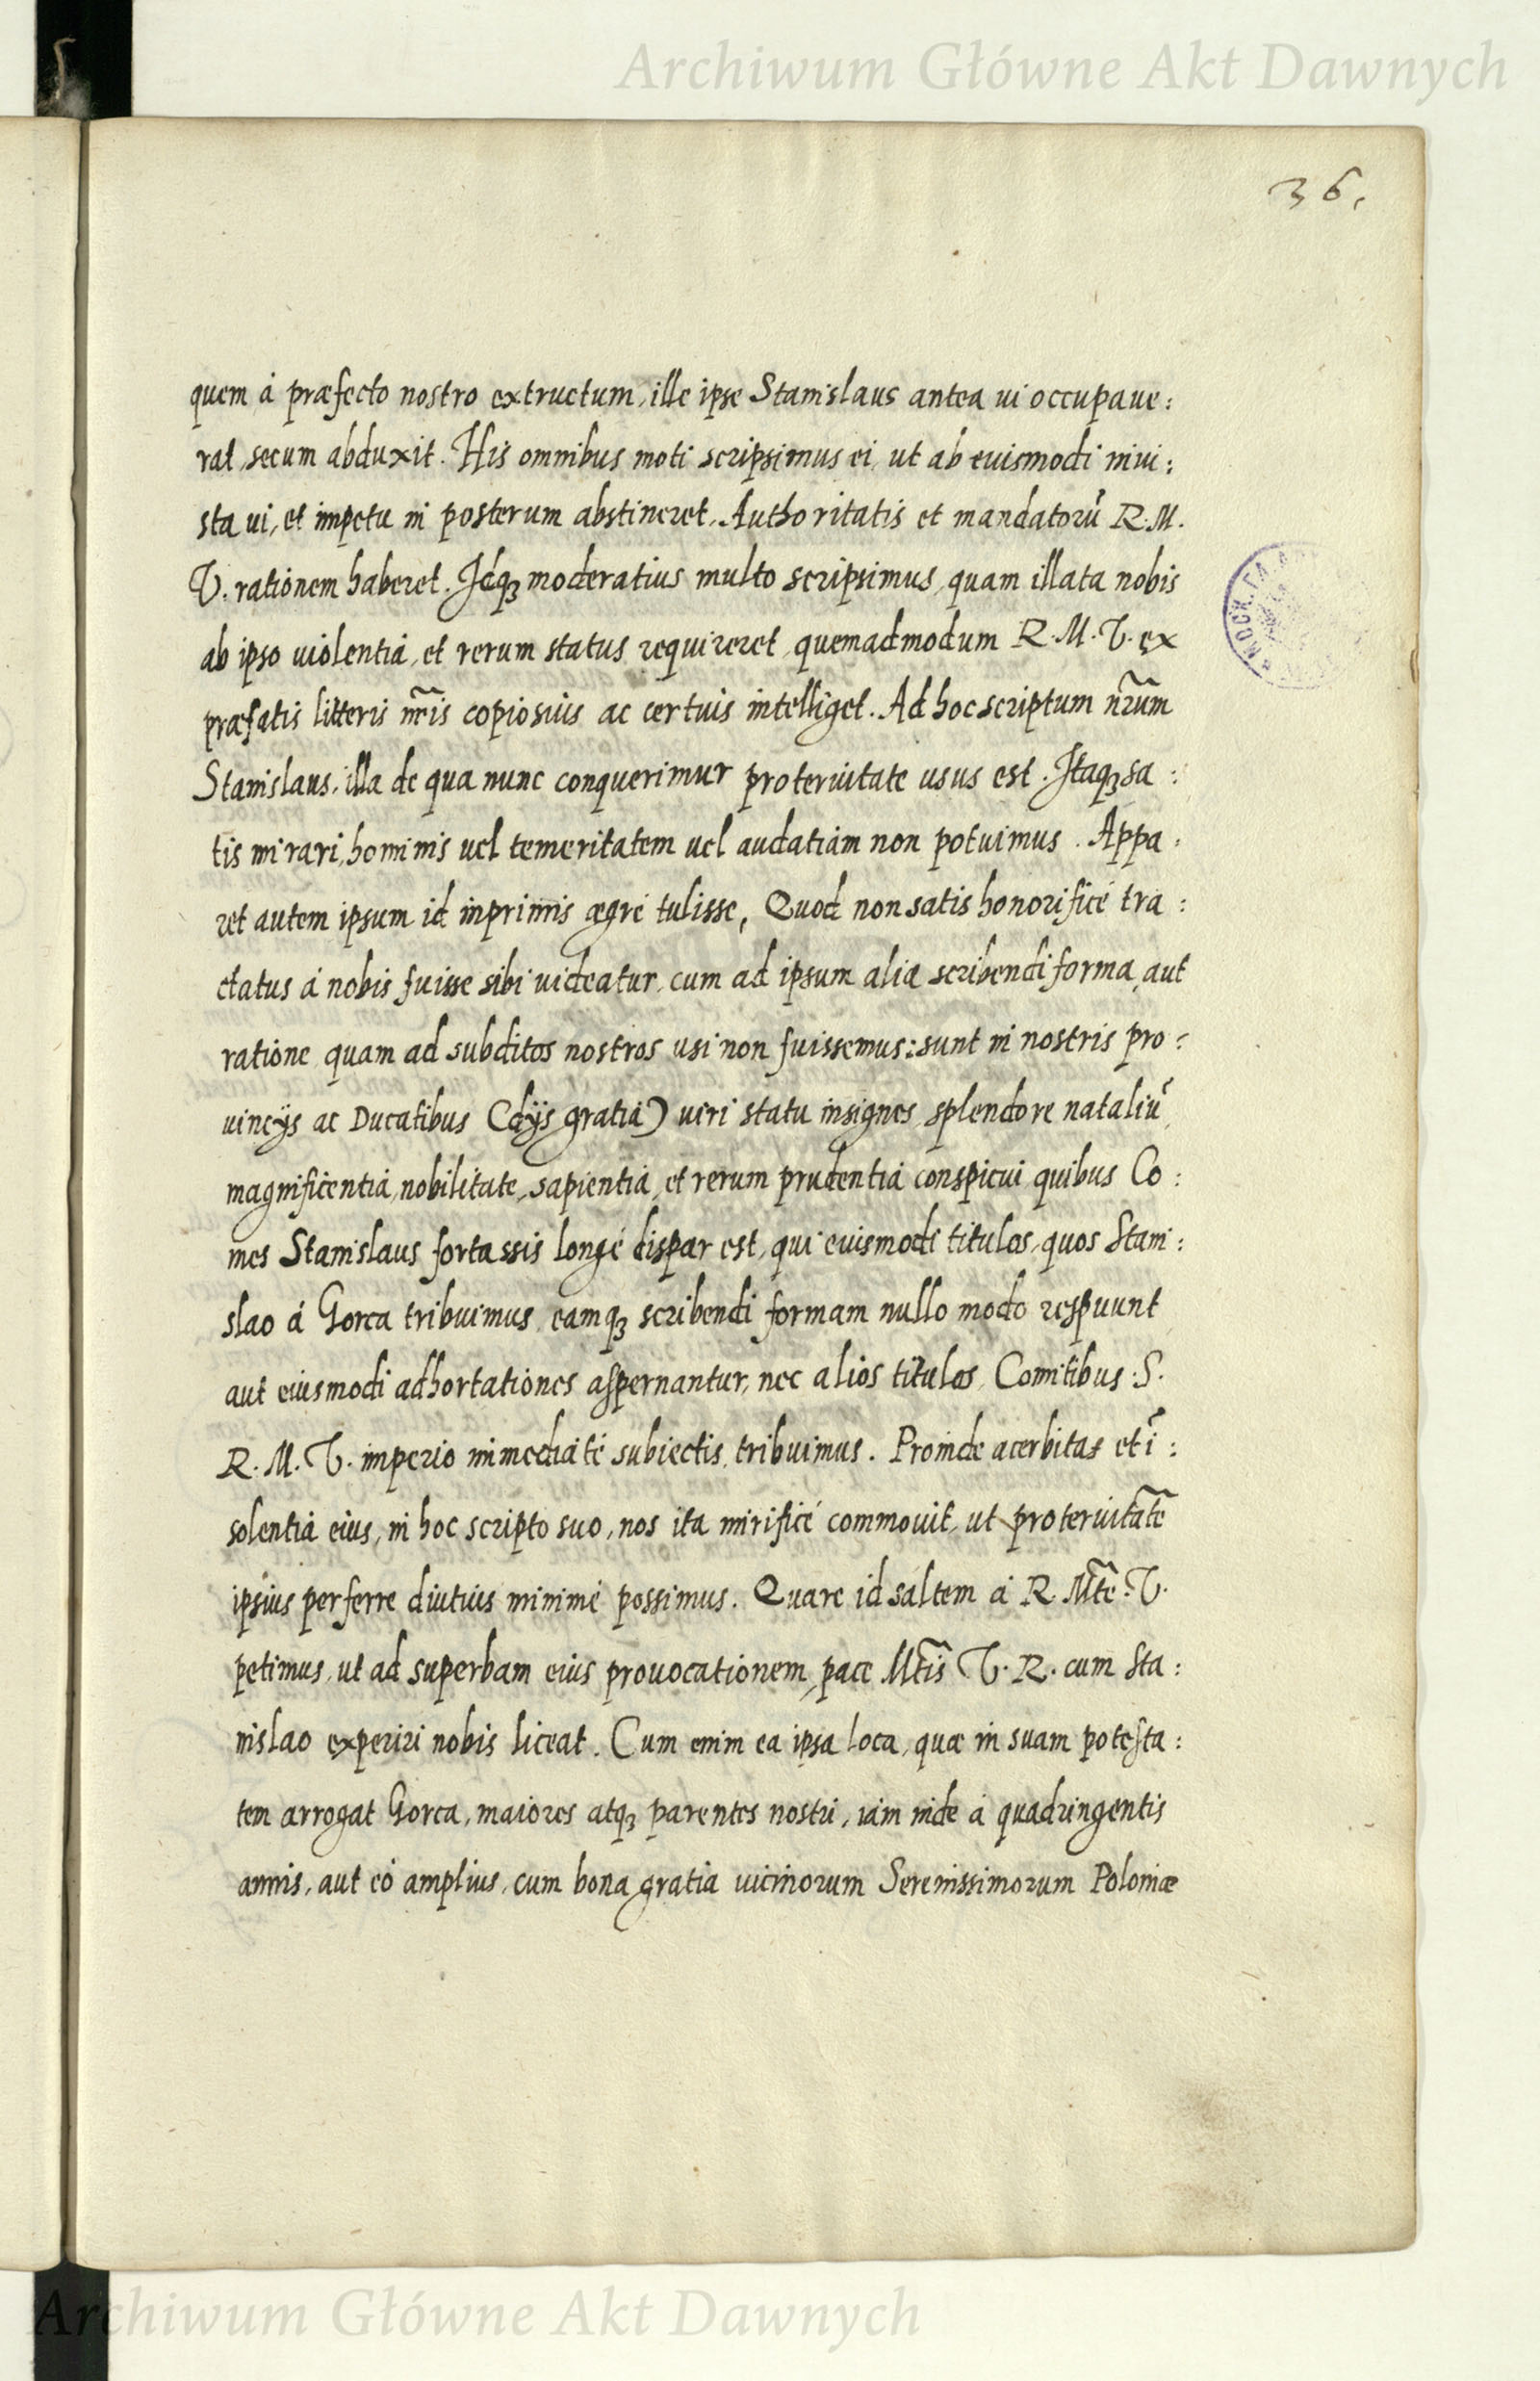 Archiwum Główne Akt Dawnych
36.
quem á præfecto nostro extructum, ille ipse Stanislaus antea ui occupaue:
rat, secum abduxit. His omnibus moti scripsimus ei, ut ab euismodi iniu:
sta ui, et impetu in posterum abstineret, Authoritatis et mandatorũ R.M.
V. rationem haberet. Idq3 moderatius multo scripsimus, quam illata nobis
ab ipso uiolentia, et rerum status requireret, quemadmodum R.M.V. ex
præfatis litteris nr̃is copiosius ac certius intelliget. Ad hoc scriptum nr̃um
Stanislaus, illa de qua nunc conquerimur proteruitate usus est. Itaq3 sa:
tis mirari, hominis uel temeritatem uel audatiam non potuimus. Appa:
ret autem ipsum id inprimis ægré tulisse, Quod non satis honorificé tra:
ctatus á nobis fuisse sibi uideatur, cum ad ipsum alia scribendi forma, aut
ratione quam ad subditos nostros usi non fuissemus: sunt in nostris pro:
uincijs ac Ducatibus (dijs gratia) uiri statu insignes, splendore nataliũ,
magnificentia, nobilitate, sapientia, et rerum prudentia conspicui quibus Co:
mes Stanislaus fortassis longé dispar est, qui euismodi titulos, quos Stani:
slao á Gorca tribuimus, eamq3 scribendi formam nullo modo respuunt
aut eiusmodi adhortationes aspernantur, nec alios titulos, Comitibus S.
R.M.V. imperio immediaté subiectis, tribuimus. Proinde acerbitas et ĩ:
solentia eius, in hoc scripto suo, nos ita mirificé commouit, ut proteruitatẽ
ipsius perferre diutius minimé possimus. Quare id saltem á R. Mtẽ. V.
petimus, ut ad superbam eius prouocationem, pace Mtĩs V.R. cum Sta:
nislao experiri nobis liceat. Cum enim ea ipsa loca, quæ in suam potesta:
tem arrogat Gorca, maiores atq3 parentes nostri, iam inde á quadringentis
annis, aut eó amplius, cum bona gratia uicinorum Serenissimorum Poloniæ
Archiwum Główne Akt Dawnych